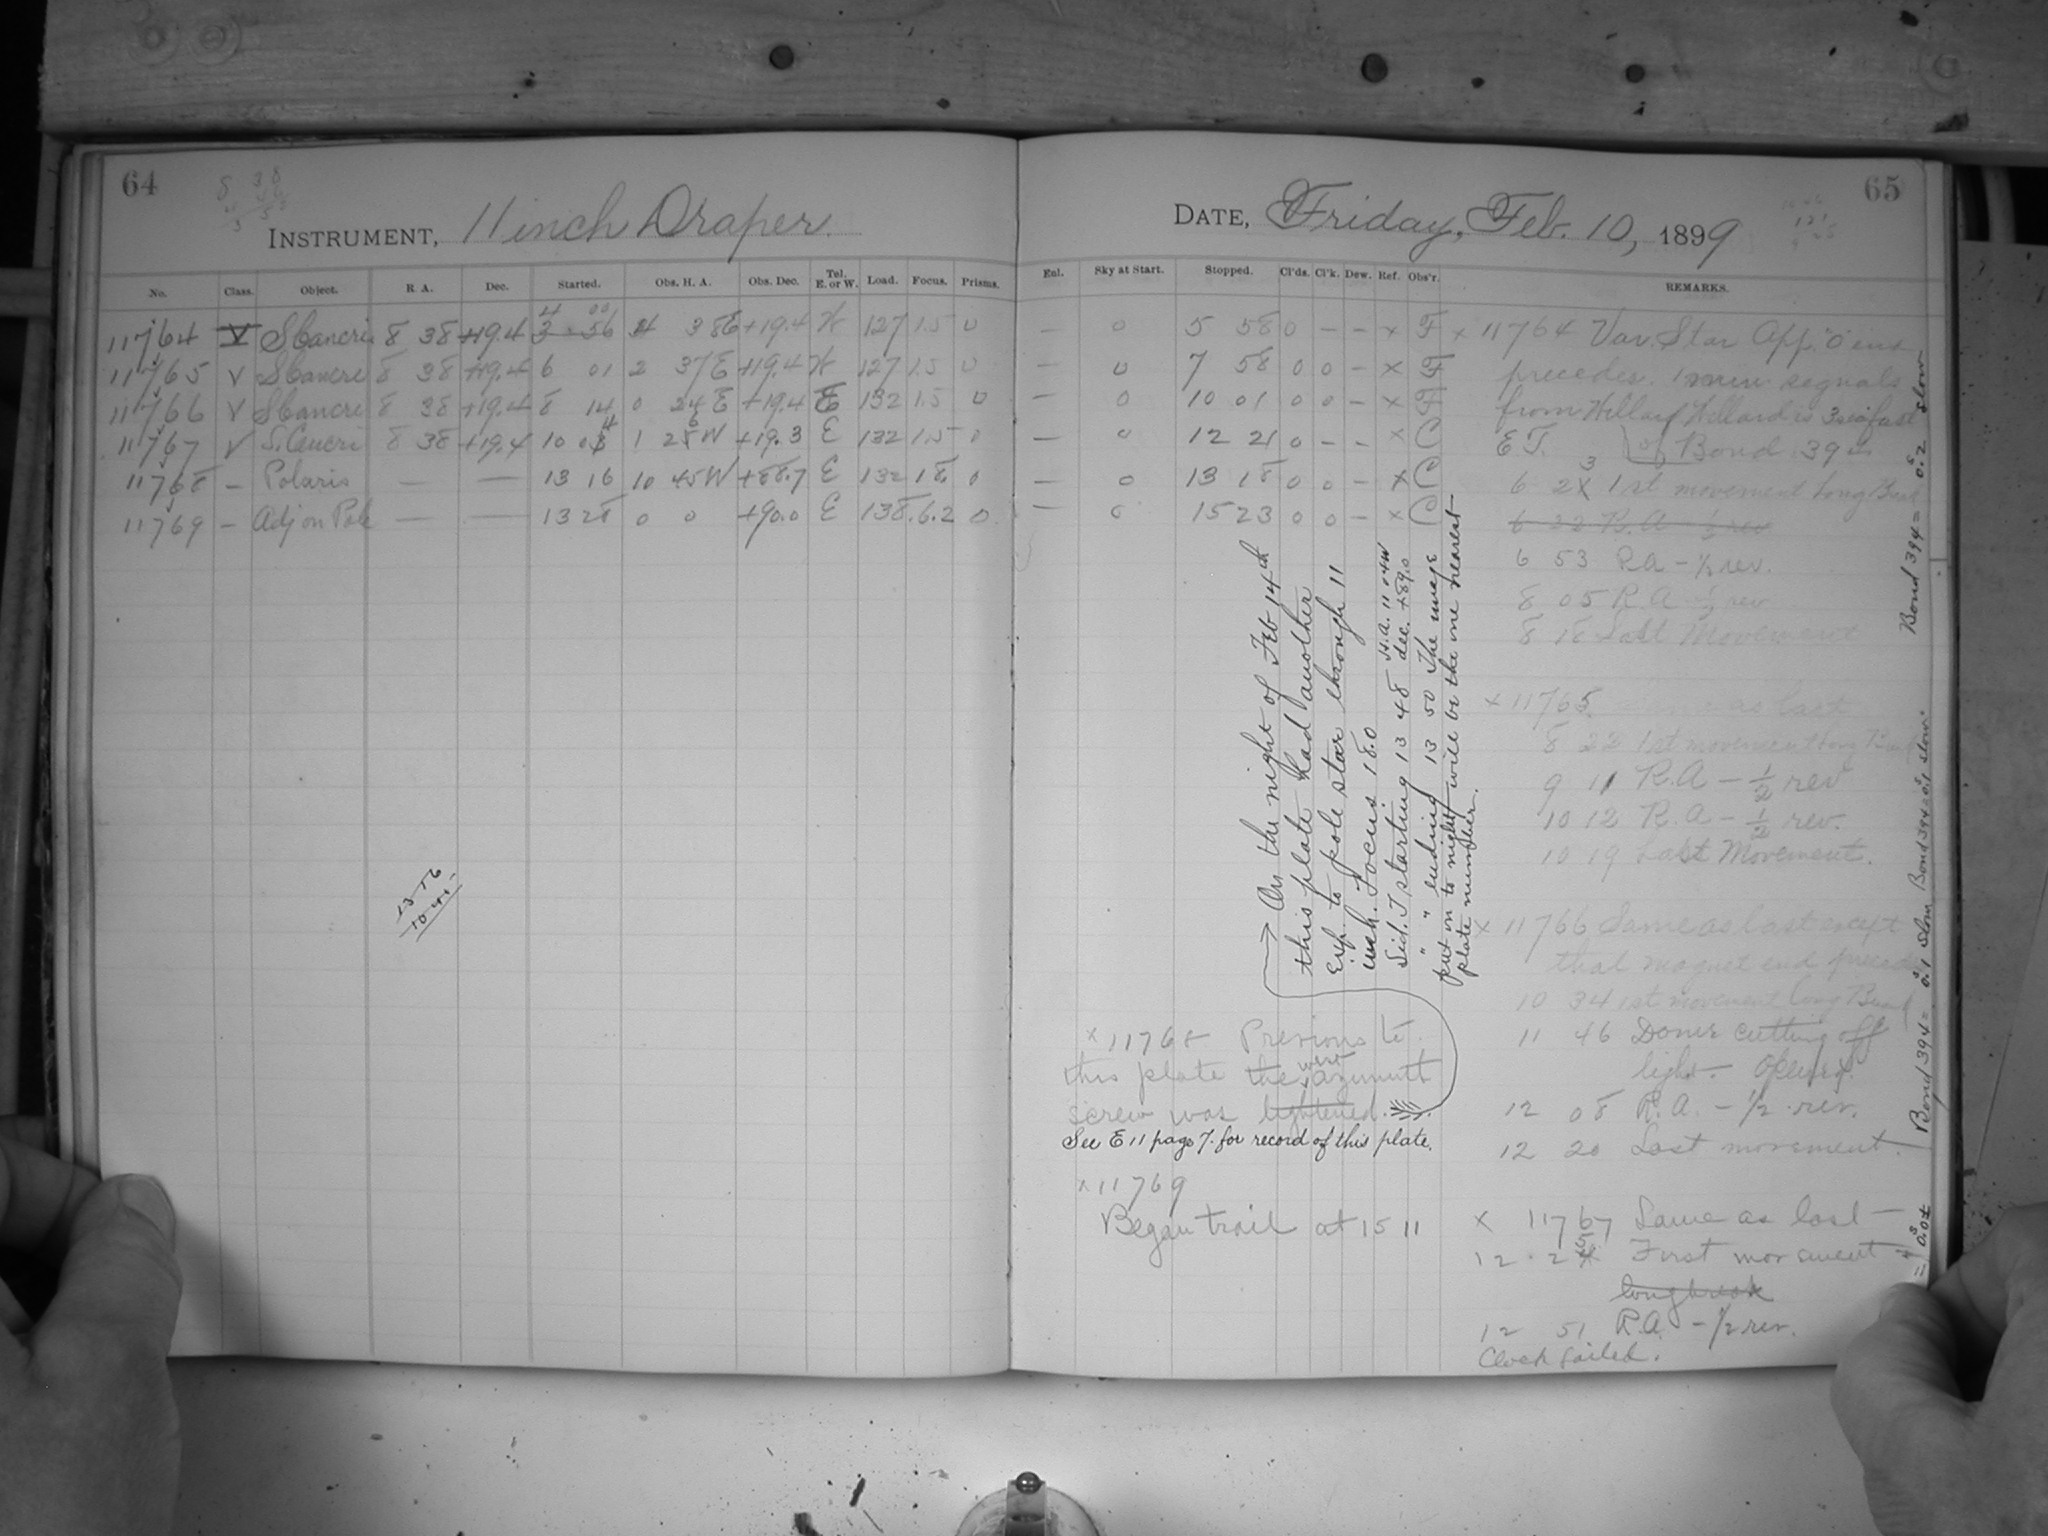 64
INSTRUMENT, 11 inch Draper.
No. Class. Object. R. A. Dec. Started. Obs. H. A. Obs. Dec. Tel. E. or W. Load. Focus. Prisms.
11764 V S Cancri 8 38 +19.4 3 56 4 00 4 38E +19.4 W 127 1.5 0
11765 V S Cancri 8 38 +19.4 6 01 2 37E +19.4 W 127 1.5 0
11766 V S Cancri 8 38 +19.4 8 14 0 24E +19.4 E 132 1.5 0
11767 V S. Cancri 8 38 +19.4 10 04 1 26W +19.3 E 132 1.5 0
11768 — Polaris — — 13 16 10 45W +88.7 E 132 18. 0
11769 — Adj on Pole — — 13 28 0 0 +90.0 E 138. 6.2 0
13 16
10 45
65
DATE, Friday, Feb. 10, 1899
Enl. Sky at Start. Stopped. Cl'ds. Cl'k. Dew. Ref. Obs'r. REMARKS.
— 0 5 58 0 — — x F
— 0 7 58 0 0 — x F
— 0 10 01 0 0 — x F
— 0 12 21 0 — — x C
— 0 13 18 0 0 — x C
— 0 15 23 0 0 — x C
x 11764 Var. Star App. "0" end
precedes. 1 min signals
from Willard Willard is fast
E F. of Bond 39
6 23 1st movement Long Break
6 22 R.A — 1/2 rev
6 53 R.A — 1/2 rev.
8 05 R.A — 1/2 rev
8 18 Last Movement
x 11765. Same as last
8 22 1st movement long Break
9 11 R.A — 1/2 rev
10 12 R.A — 1/2 rev.
10 19 Last Movement.
x 11766 Same as last except
that magnet end precedes
10 34 1st movement long Break
11 46 Dome cutting off
light — Opened.
12 08 R.A. — 1/2 rev.
12 20 Last movement.
x 11767 Same as last —
12 25 First movement
long break
12 51 R.A. — 1/2 rev.
Clock failed.
On the night of Feb 14th
this plate had another
exp. to pole star through 11
inch. Focus 18.0
Sid. T starting 13 48 H.A. 11 04W dec. +89.0
" " ending 13 50 The image
put on to night will be the one nearest
plate number.
x 11768 Previous to
this plate the west azimuth
screw was tightened.
See E 11 page 7. for record of this plate.
x 11769
Began trail at 15 11
Bond 394 = 0.2 slow
Bond 394 = 0.1 slow.
Bond 394 = 0.1 slow